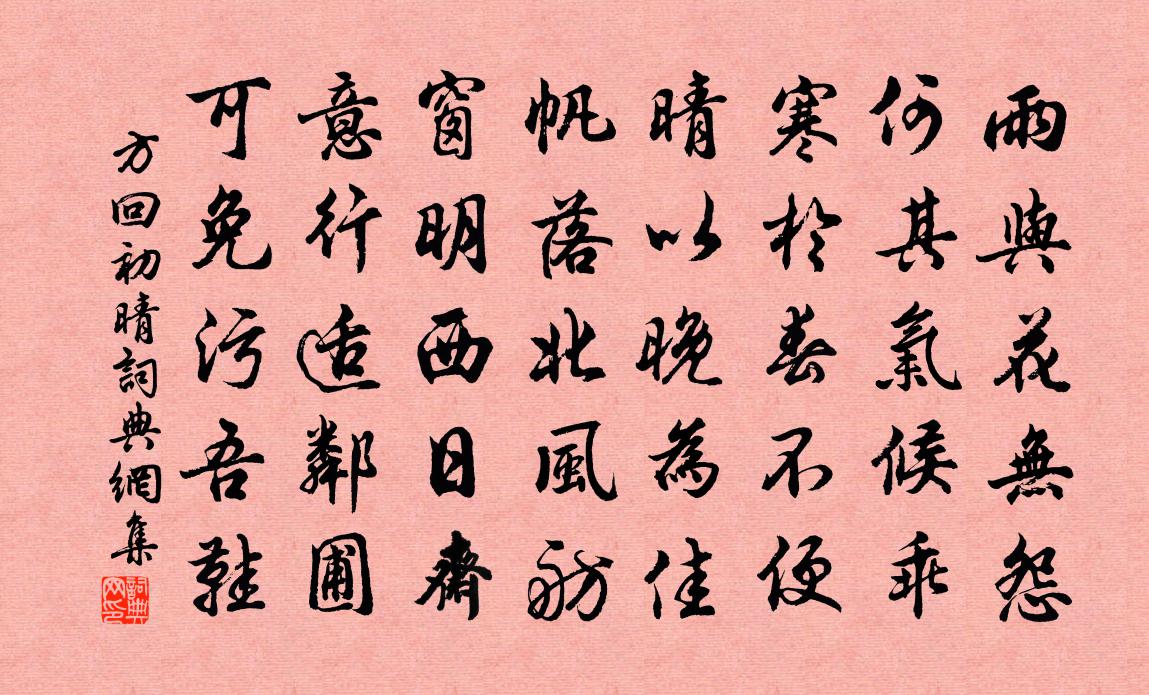 雨與花無怨
何其氣候乖
寒於春不便
晴以晚為佳
帆落北風舫
窗明西日齋
意行适鄰圃
可免污吾鞋
方回初晴詞典網集
詞典网印